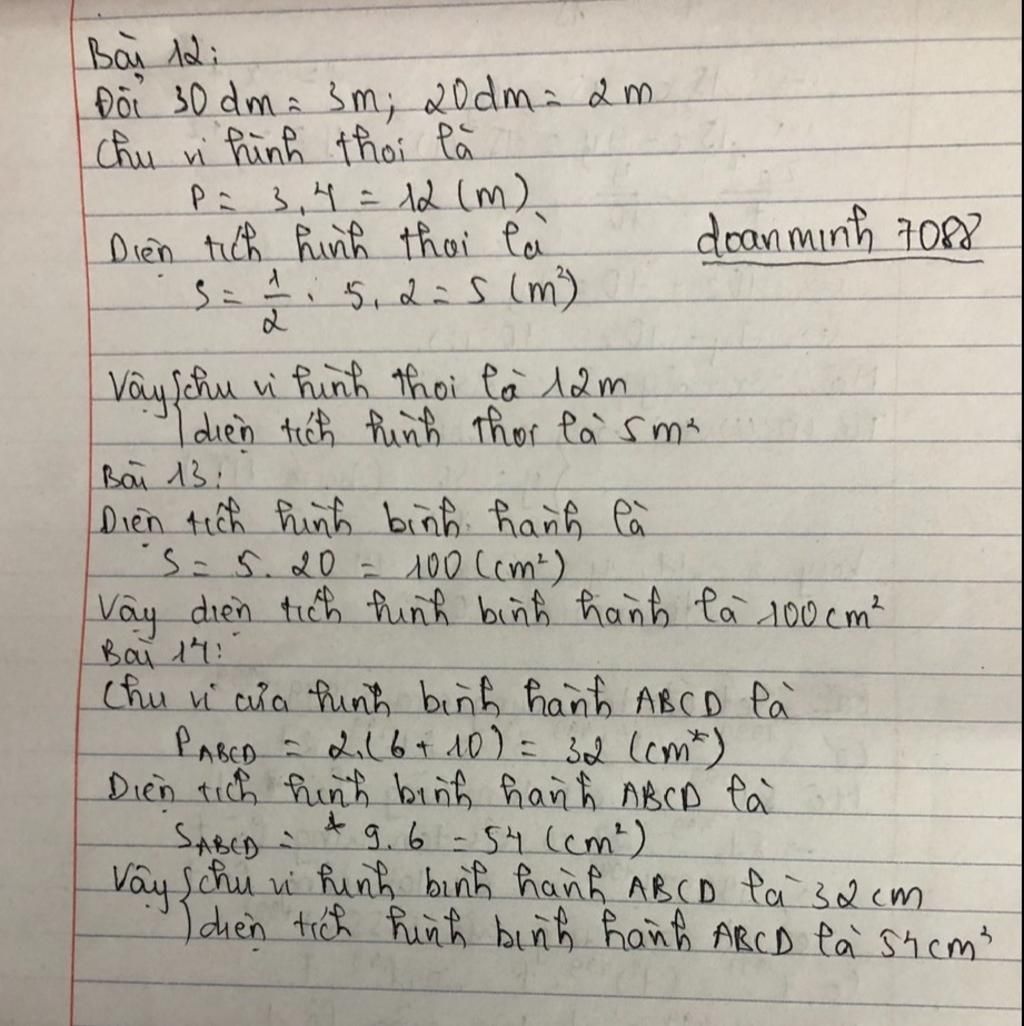 Bài 12:
Đổi 30 dm = 3m; 20dm = 2m
Chu vi hình thoi là
P = 3.4 = 12 (m)
Diện tích hình thoi là
doanminh 7088
S = 1/2 . 5.2 = 5 (m²)
Vậy { chu vi hình thoi là 12m
diện tích hình thoi là 5m²
Bài 13:
Diện tích hình bình hành là
S = 5.20 = 100 (cm²)
Vậy diện tích hình bình hành là 100cm²
Bài 14:
Chu vi của hình bình hành ABCD là
P_ABCD = 2.(6+10) = 32 (cm)
Diện tích hình bình hành ABCD là
S_ABCD = 9.6 = 54 (cm²)
Vậy { chu vi hình bình hành ABCD là 32cm
diện tích hình bình hành ABCD là 54cm²